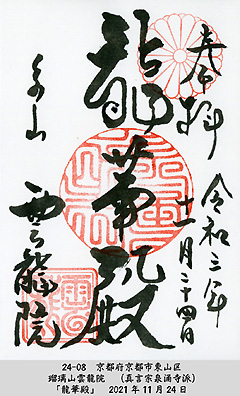 奉拝
令和三年
十一月二十四日
龍華殿
泉山
雲龍院
24-08 京都府京都市東山区
瑠璃山雲龍院 (真言宗泉涌寺派)
「龍華殿」 2021年11月24日